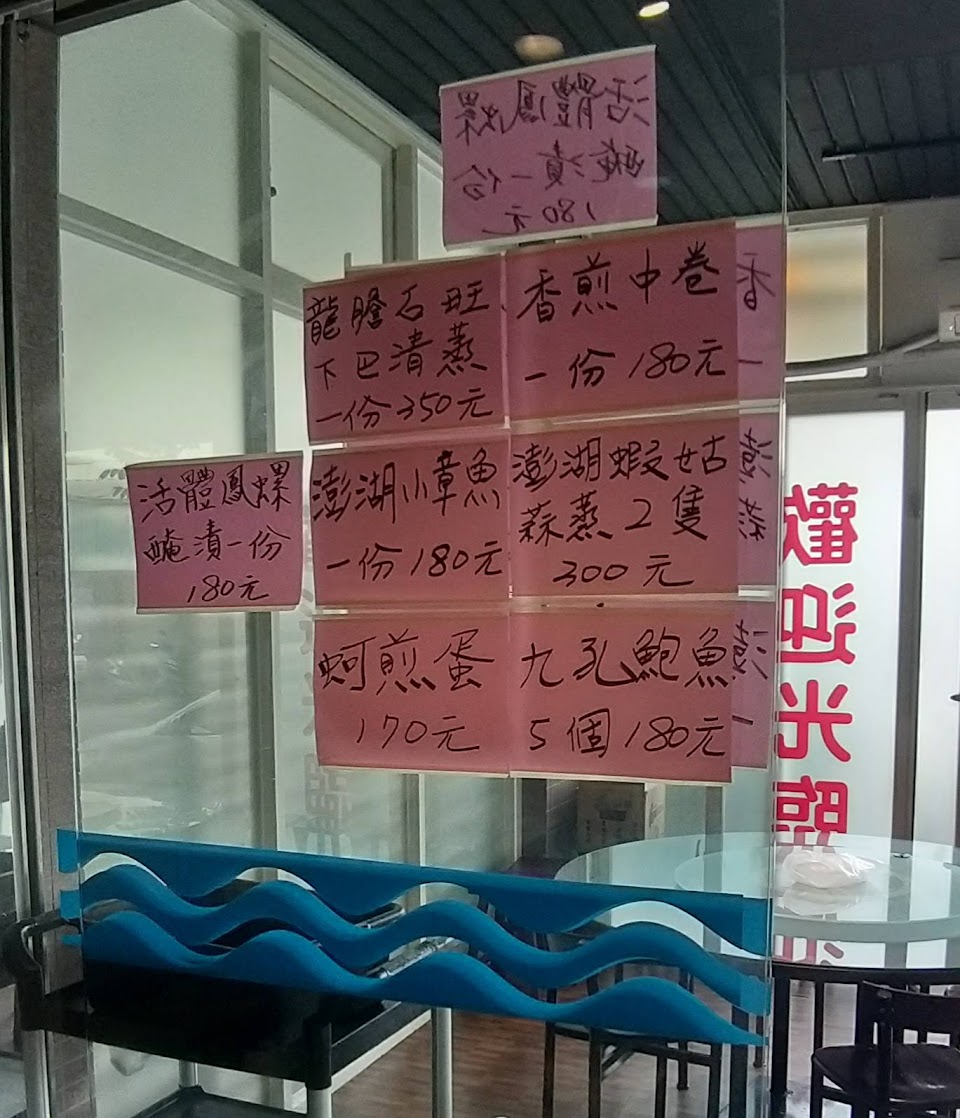 活體鳳螺
醃漬一份
180元
龍膽石斑
下巴清蒸
一份350元
香煎中卷
一份180元
香
一
活體鳳螺
醃漬一份
180元
澎湖小章魚
一份180元
澎湖蝦姑
蒜蒸2隻
300元
澎
蒜
蚵煎蛋
170元
九孔鮑魚
5個180元
澎
一
歡迎光臨